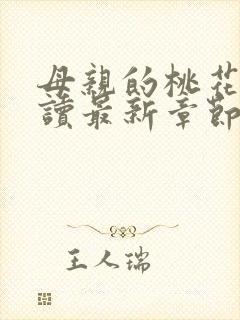 母親的桃花
讀最新章節
王人瑞